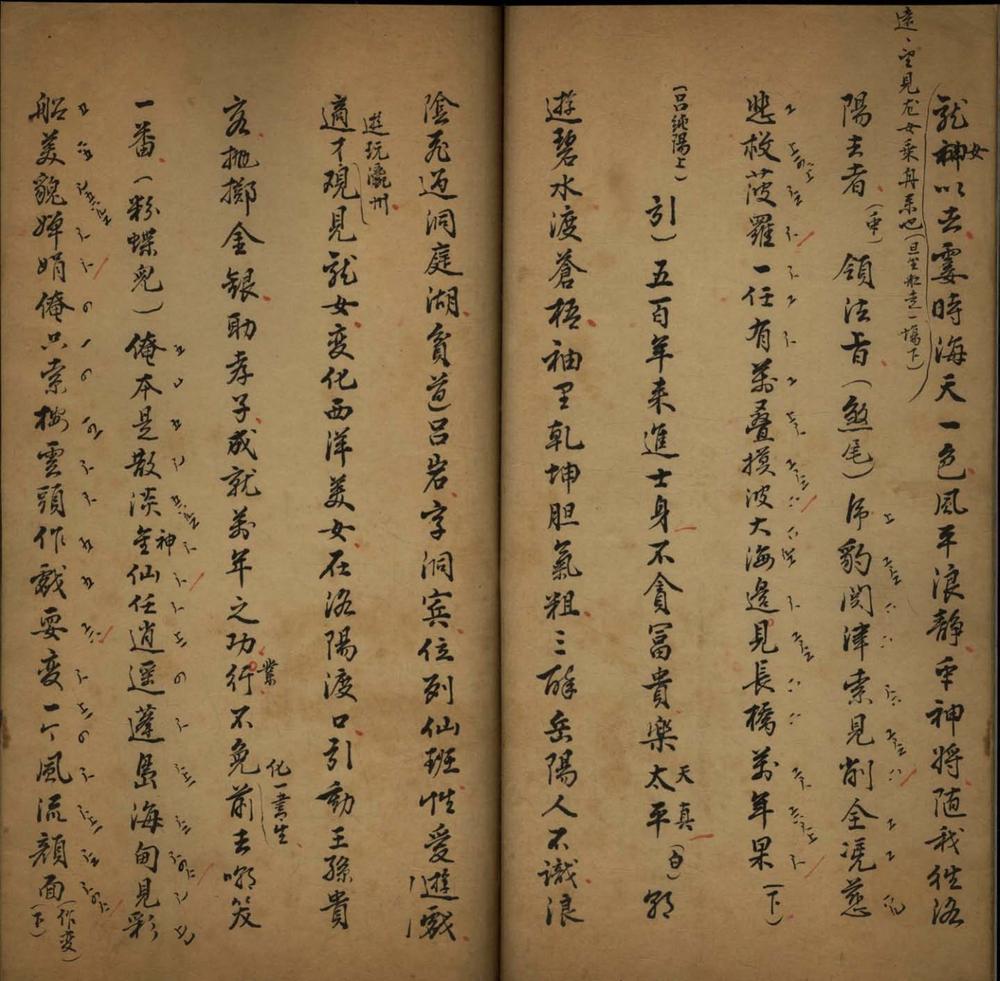 遠、望見龙女乘舟来也(旦坐船走一場下)
龍神女以去霎時海天一色風平浪静衆神將随我往洛
陽去者(衆)領法旨(煞尾)席豹関津索見削全凴慈
悲救菠羅一任有萬叠摸波大海邊見長橋萬年果(下)
(呂純陽上)
引)五百年来進士身不貪冨貴樂太平天真(白)朝
遊碧水渡蒼梧袖里乾坤胆氣粗三醉岳陽人不識浪
陰飛過洞庭湖貧道呂岩字洞賓位列仙班性愛遊戯
遊玩瀛州
適才覌見龍女変化西洋美女在洛陽渡口引動王孫貴
客抛擲金銀助孝子成就萬年之功行業不免前去嘲笑
化一書生
一番(粉蝶兒)俺本是散淡金神仙任逍遥蓬島海甸見彩
船美貌婵娟俺只索按雲頭作戯耍変一个風流顔面(作变)(下)